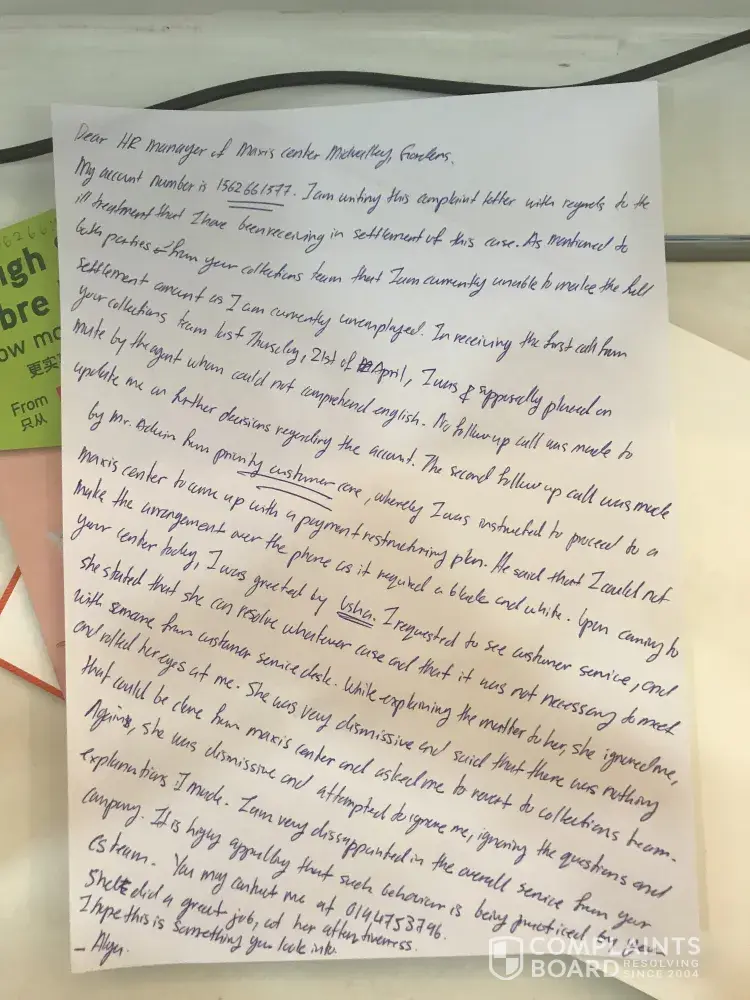 Dear HR manager of Maxis center Midvalley, Gardens.
My account number is 1562661577. I am writing this complaint letter with regards to the
ill treatment that I have been receiving in settlement of this case. As mentioned to
both parties from your collections team that I am currently unable to make the full
settlement amount as I am currently unemployed. In receiving the first call from
your collections team last Thursday, 21st of April, I was supposedly placed on
mute by the agent whom could not comprehend english. No follow up call was made to
update me on further decisions regarding the account. The second follow up call was made
by Mr. from priority customer care, whereby I was instructed to proceed to a
maxis center to come up with a payment restructuring plan. He said that I could not
make the arrangement over the phone as it required a black and white. Upon coming to
your center today, I was greeted by Usha. I requested to see customer service, and
she stated that she can resolve whatever case and that it was not necessary to meet
with someone from customer service desk. While explaining the matter to her, she ignored me,
and rolled her eyes at me. She was very dismissive and said that there was nothing
that could be done from maxis center and asked me to revert to collections team.
Again, she was dismissive and attempted to ignore me, ignoring the questions and
explanations I made. I am very dissappointed in the overall service from your
company. It is higly appalling that such behaviour is being practiced by your
CS team. You may contact me at 0194753796.
did a great job, at her attentiveness.
I hope this is something you look into.
igh
bre
ow mo
更实
From
只从
COMPLAINTS
BOARD RESOLVING
SINCE 2004